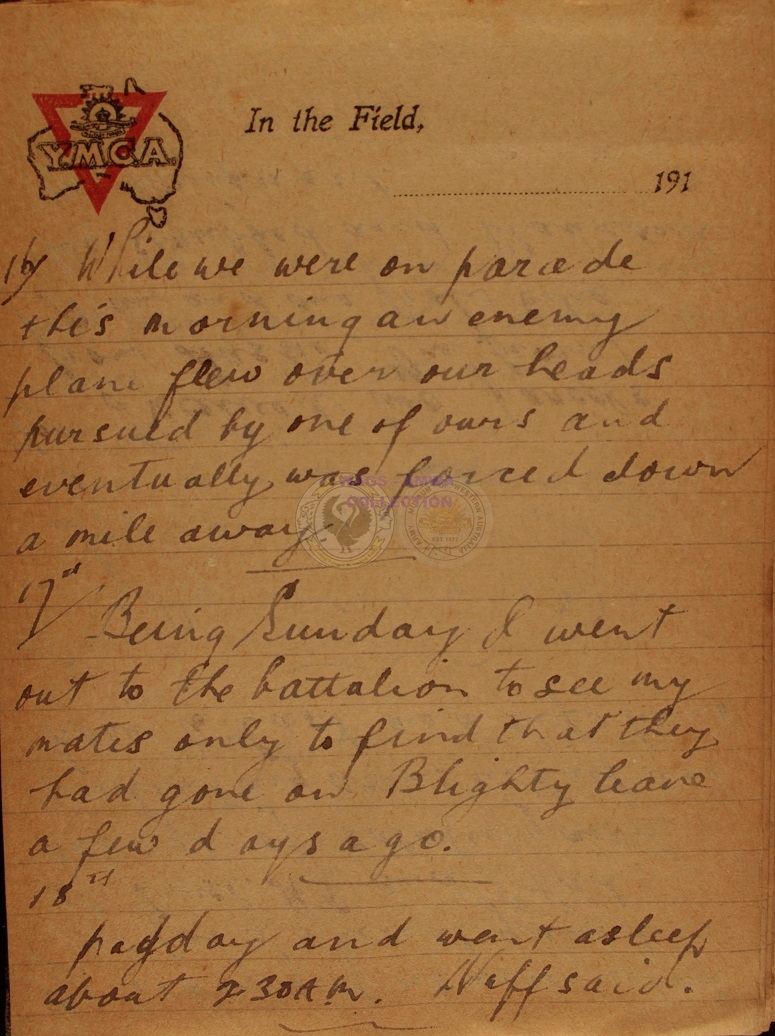 Y.M.C.A.
In the Field,
191
16/ While we were on parade
this morning an enemy
plane flew over our heads
pursued by one of ours and
eventually was forced down
a mile away
17th/ Being Sunday I went
out to the battalion to see my
mates only to find that they
had gone on Blighty leave
a few days ago.
18th
payday and went asleep
about 2 30 A.M. Nuff said.
COLLECTION